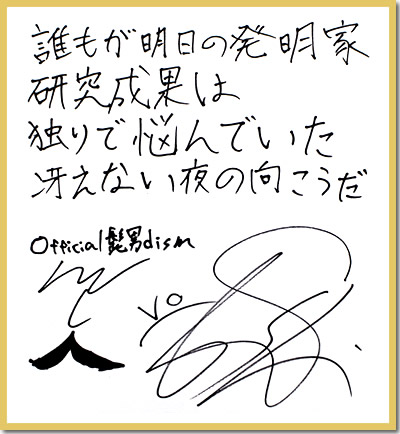 誰もが明日の発明家
研究成果は
独りで悩んでいた
冴えない夜の向こうだ
Official髭男dism
vo